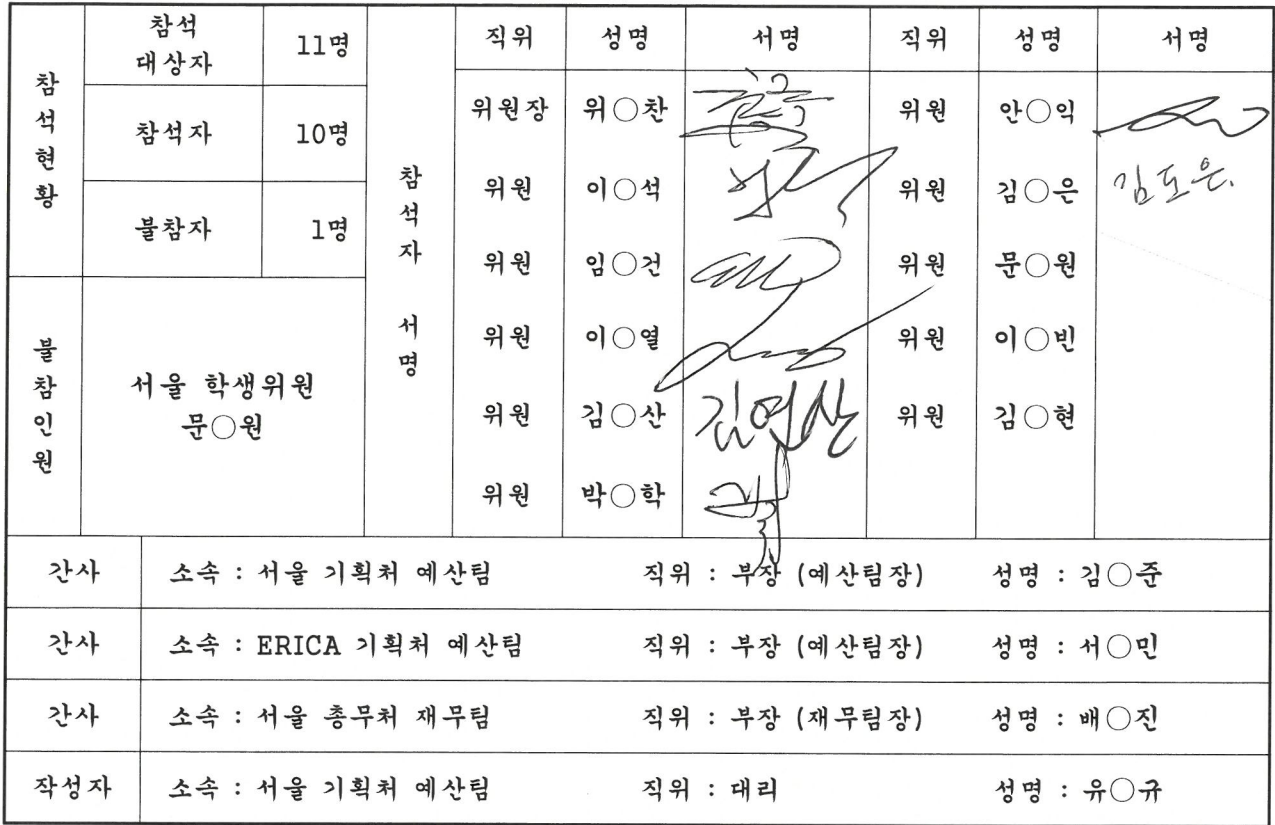 참석현황
참석
대상자
11명
참석자
10명
불참자
1명
불참인원
서울 학생위원
문○원
참석자 서명
직위 성명 서명 직위 성명 서명
위원장 위○찬 위원 안○익
위원 이○석 위원 김○은 김도은.
위원 임○건 위원 문○원
위원 이○열 위원 이○빈
위원 김○산 김연산 위원 김○현
위원 박○학
간사 소속 : 서울 기획처 예산팀 직위 : 부장 (예산팀장) 성명 : 김○준
간사 소속 : ERICA 기획처 예산팀 직위 : 부장 (예산팀장) 성명 : 서○민
간사 소속 : 서울 총무처 재무팀 직위 : 부장 (재무팀장) 성명 : 배○진
작성자 소속 : 서울 기획처 예산팀 직위 : 대리 성명 : 유○규